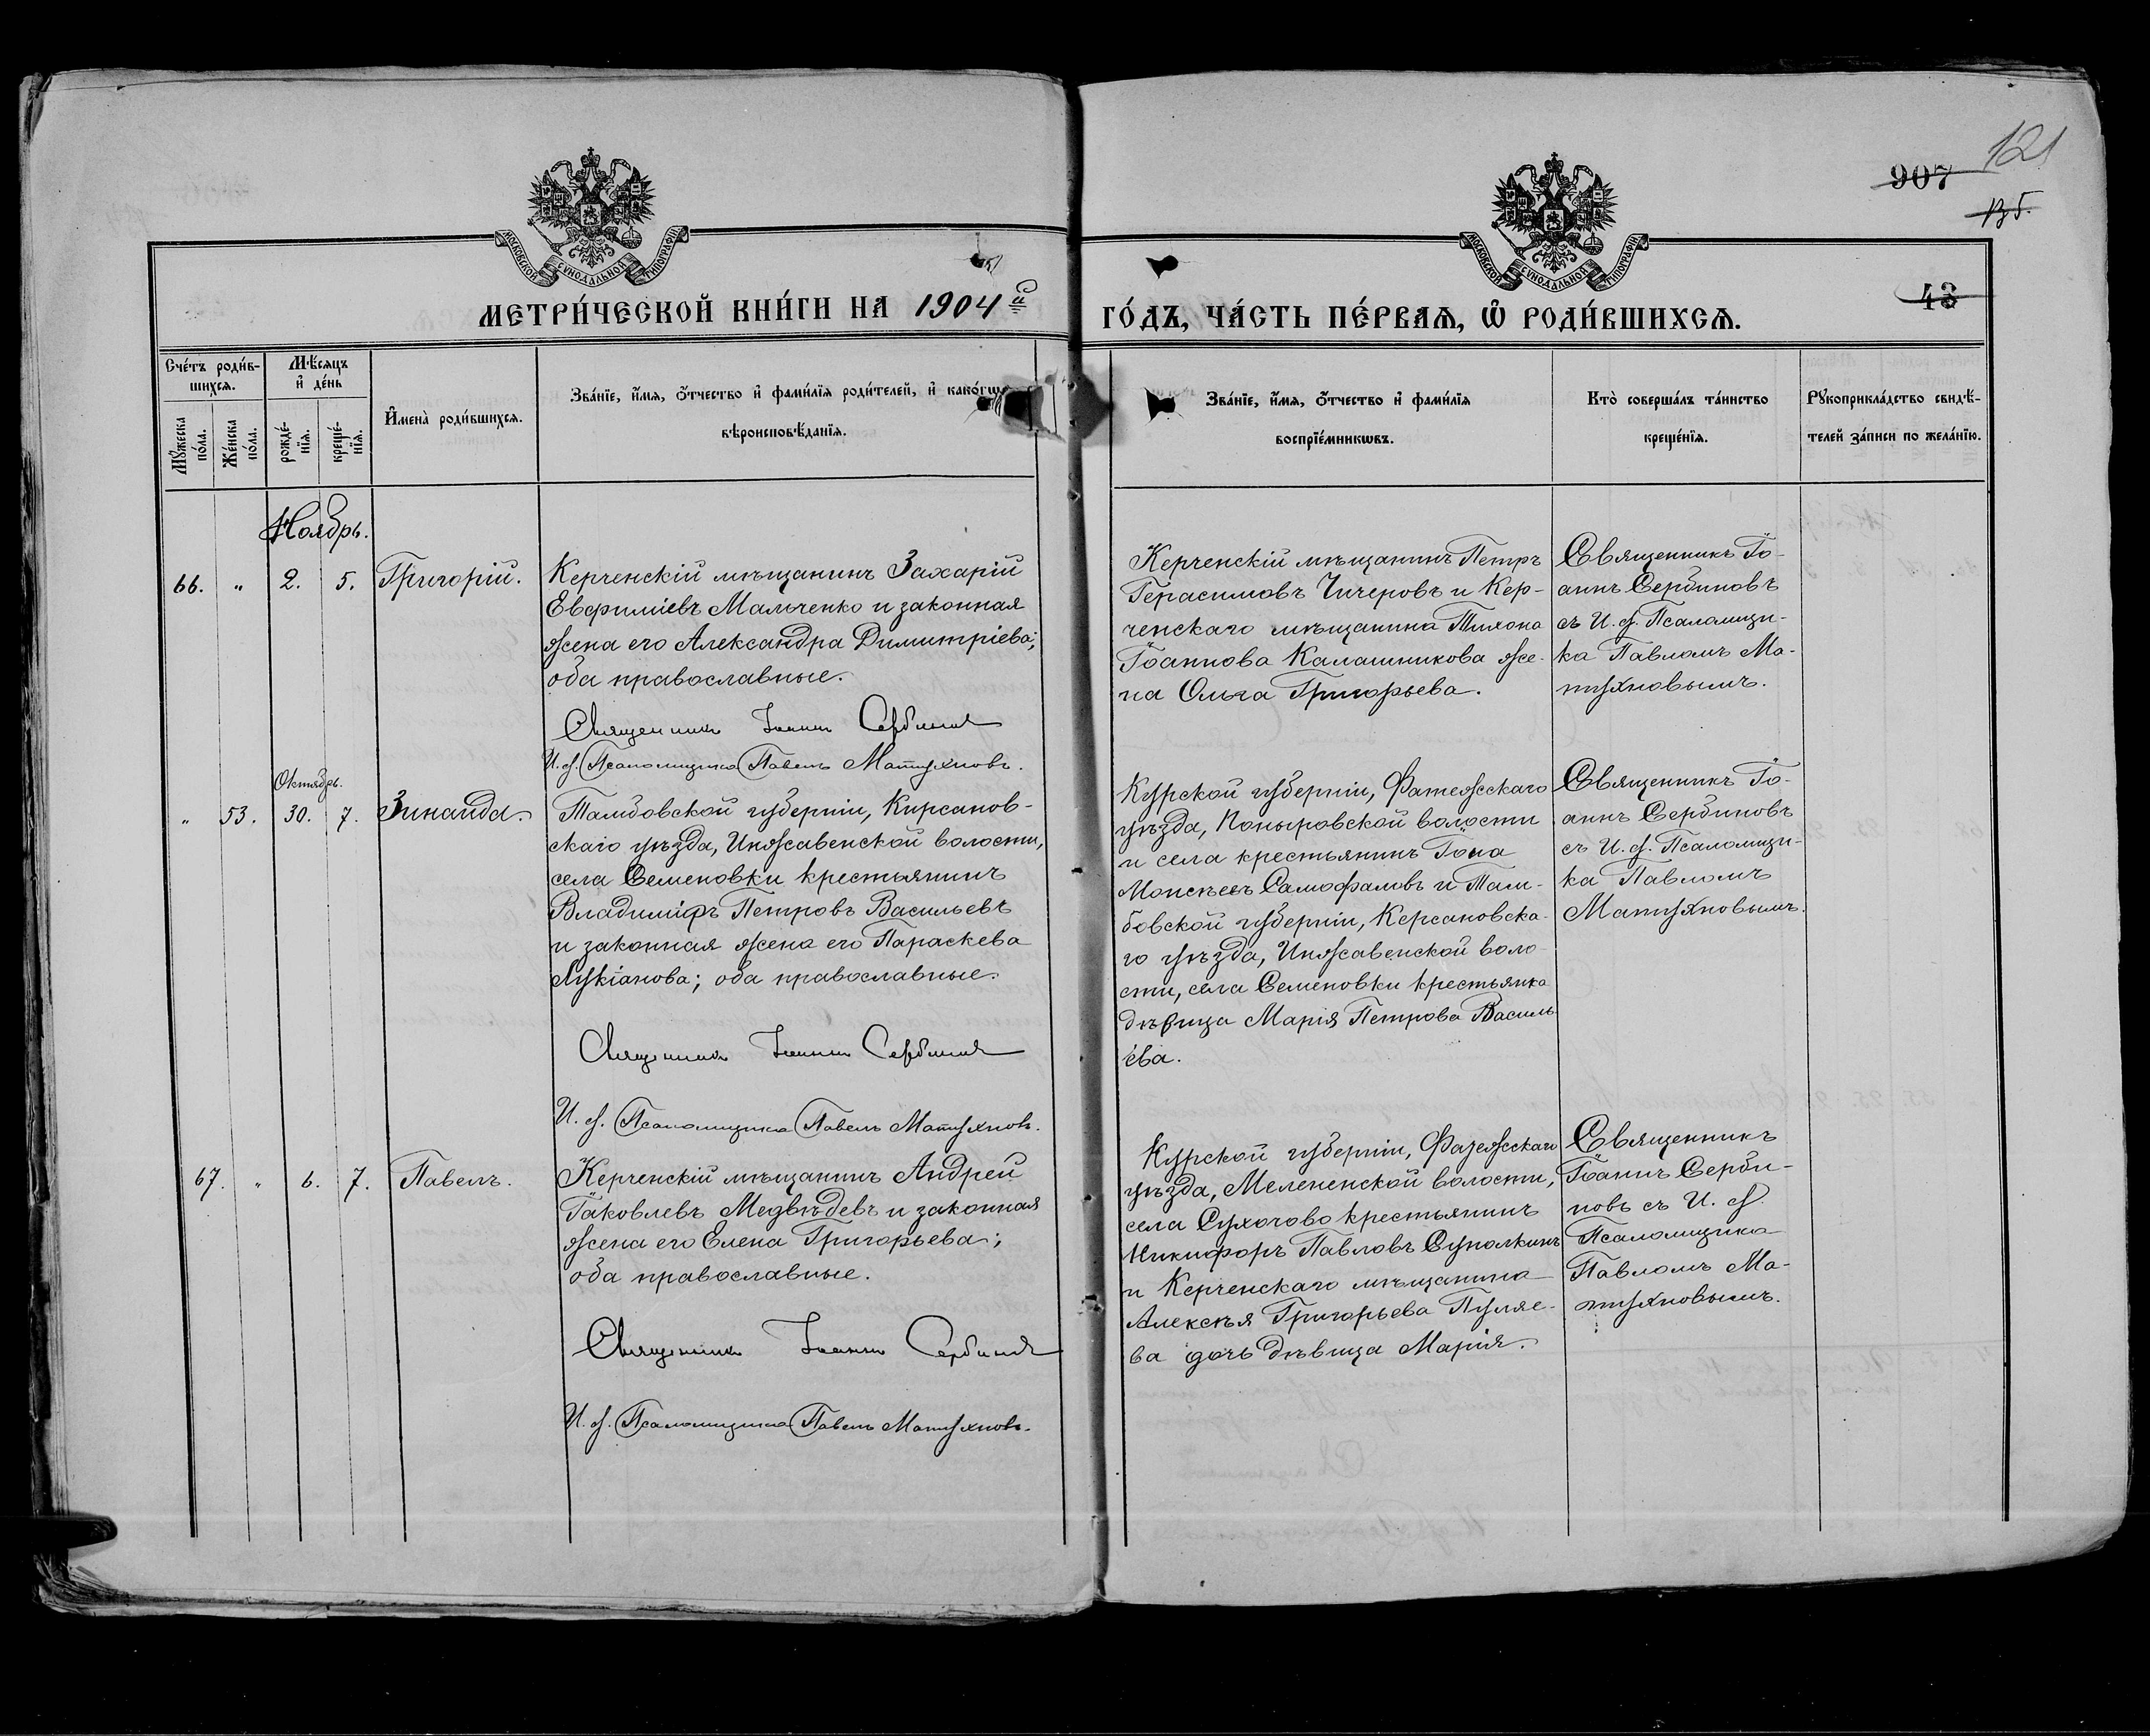 121
907
135.
МОСКОВСКОЙ СѴНОДАЛЬНОЙ ТИПОГРАФІИ
МОСКОВСКОЙ СѴНОДАЛЬНОЙ ТИПОГРАФІИ
43
МЕТРИ́ЧЕСКОЙ КНИ́ГИ НА 1904й
ГО́ДЪ, ЧА́СТЬ ПЕ́РВАѦ, Ѡ РОДИ́ВШИХСѦ.
Сче́тъ роди́в-
шихсѧ.
Мꙋ́жеска по́ла.
Же́нска по́ла.
Мѣ́сѧцъ
и҆ де́нь
рожде́-нїѧ.
креще́-нїѧ.
И҆мена̀ роди́вшихсѧ.
Зва́нїе, и҆́мѧ, ѻ҆́тчество и҆ фами́лїѧ роди́телей, и҆ како́гѡ
вѣроисповѣ́данїѧ.
Зва́нїе, и҆́мѧ, ѻ҆́тчество и҆ фами́лїѧ
воспрїе́мникѡвъ.
Кто̀ соверша́лъ та́инство
креще́нїѧ.
Рꙋкоприкла́дство свидѣ́-
телей за́писи по жела́нїю.
Ноябрь.
66. " 2. 5. Григорій.
Керченскій мѣщанинъ Захарій
Евфиміевъ Мальченко и законная
жена его Александра Димитріева;
оба православные.
Священникъ Іоаннъ Сербиновъ
И. д. Псаломщика Павелъ Матухновъ.
Керченскій мѣщанинъ Петръ
Герасимовъ Чичеровъ и Кер-
ченскаго мѣщанина Тихона
Іоаннова Калашникова же-
на Ольга Григорьева.
Священникъ Іо-
аннъ Сербиновъ
съ И. д. Псаломщи-
ка Павломъ Ма-
тухновымъ.
Октябрь.
" 53. 30. 7. Зинаида.
Тамбовской губерніи, Кирсанов-
скаго уѣзда, Инжавенской волости,
села Семеновки крестьянинъ
Владиміръ Петровъ Васильевъ
и законная жена его Параскева
Лукіанова; оба православные.
Священникъ Іоаннъ Сербиновъ
И. д. Псаломщика Павелъ Матухновъ.
Курской губерніи, Фатежскаго
уѣзда, Поныровской волости
и села крестьянинъ Іона
Моисѣевъ Самофаловъ и Там-
бовской губерніи, Керсановска-
го уѣзда, Инжавенской воло-
сти, села Семеновки крестьянка
дѣвица Марія Петрова Василь-
ева.
Священникъ Іо-
аннъ Сербиновъ
съ И. д. Псаломщи-
ка Павломъ
Матухновымъ.
67. " 6. 7. Павелъ.
Керченскій мѣщанинъ Андрей
Іаковлевъ Медвѣдевъ и законная
жена его Елена Григорьева;
оба православные.
Священникъ Іоаннъ Сербиновъ
И. д. Псаломщика Павелъ Матухновъ.
Курской губерніи, Фатежскаго
уѣзда, Мелененской волости,
села Сухочово крестьянинъ
Никифоръ Павловъ Суполкинъ
и Керченскаго мѣщанина
Алексѣя Григорьева Пуляе-
ва дочь дѣвица Марія.
Священникъ
Іоаннъ Серби-
новъ съ И. д.
Псаломщика
Павломъ Ма-
тухновымъ.